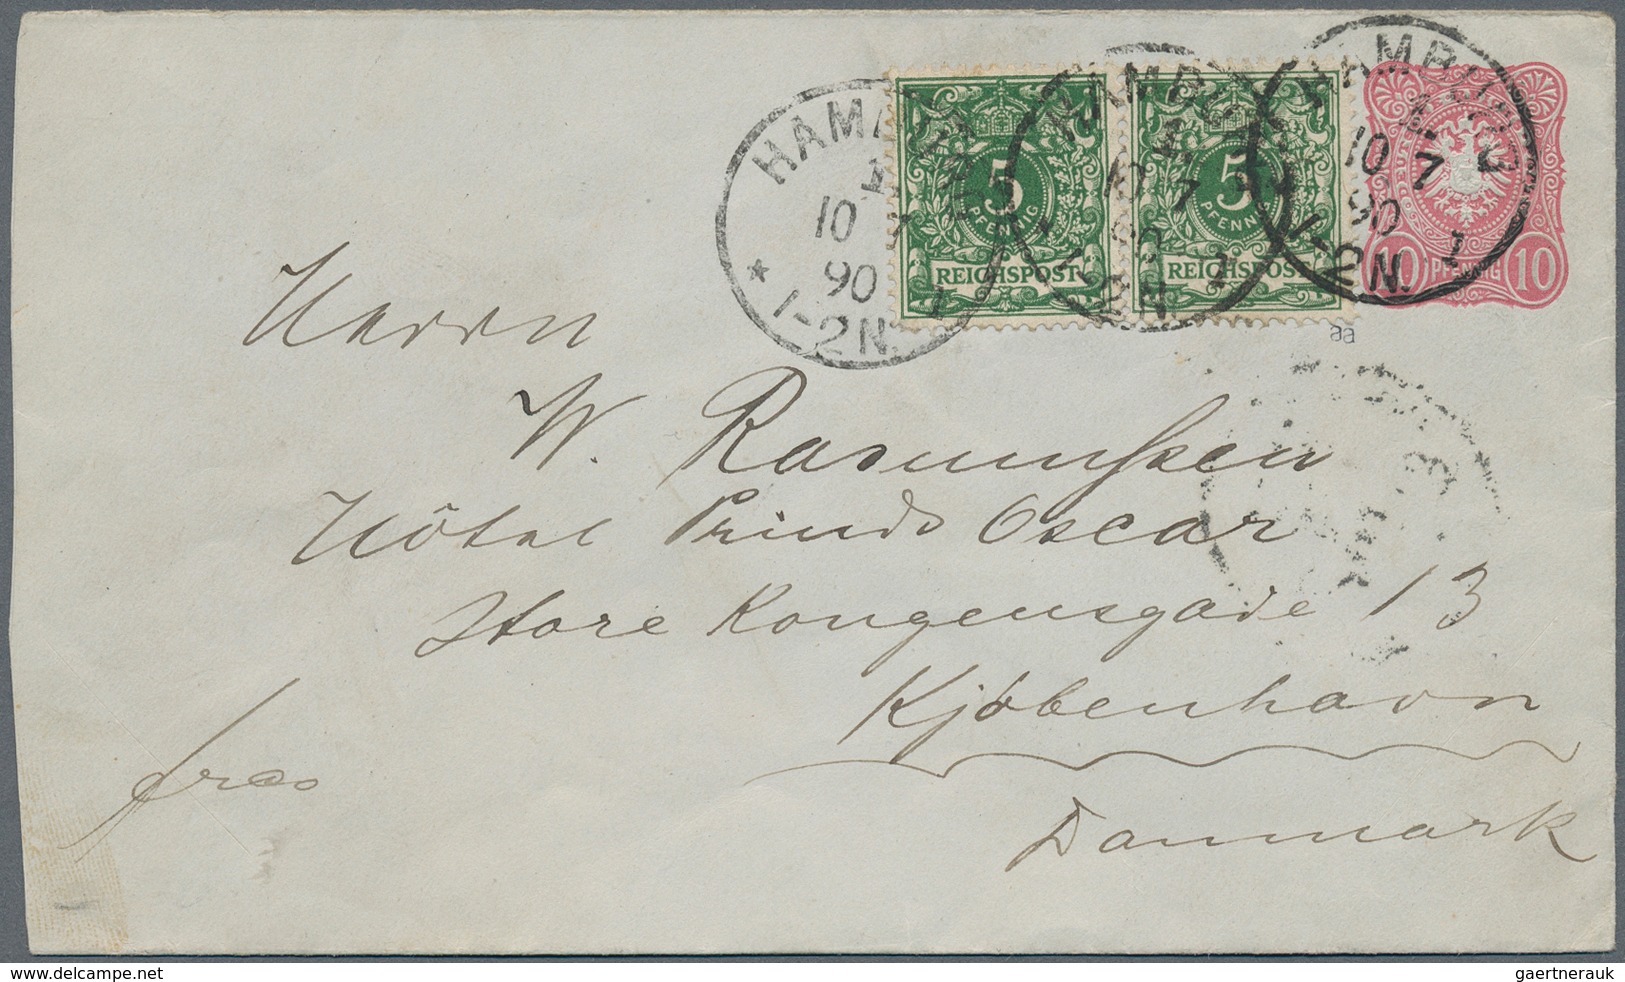 HAMBURG
1
10 7
90
* 1-2N. 1
5
PFENNIG
REICHSPOST
5
PFENNIG
REICHSPOST
HAMBURG
1
10 7
90
1-2N. 1
HAMBURG
1
10 7
90
1-2N. 1
10 PFENNIG 10
aa
Herrn
W. Rasmussen
Hôtel Prinds Oscar
Store Kongensgade 13
Kjöbenhavn
Danmark
fres
www.delcampe.net
gaertnerauk